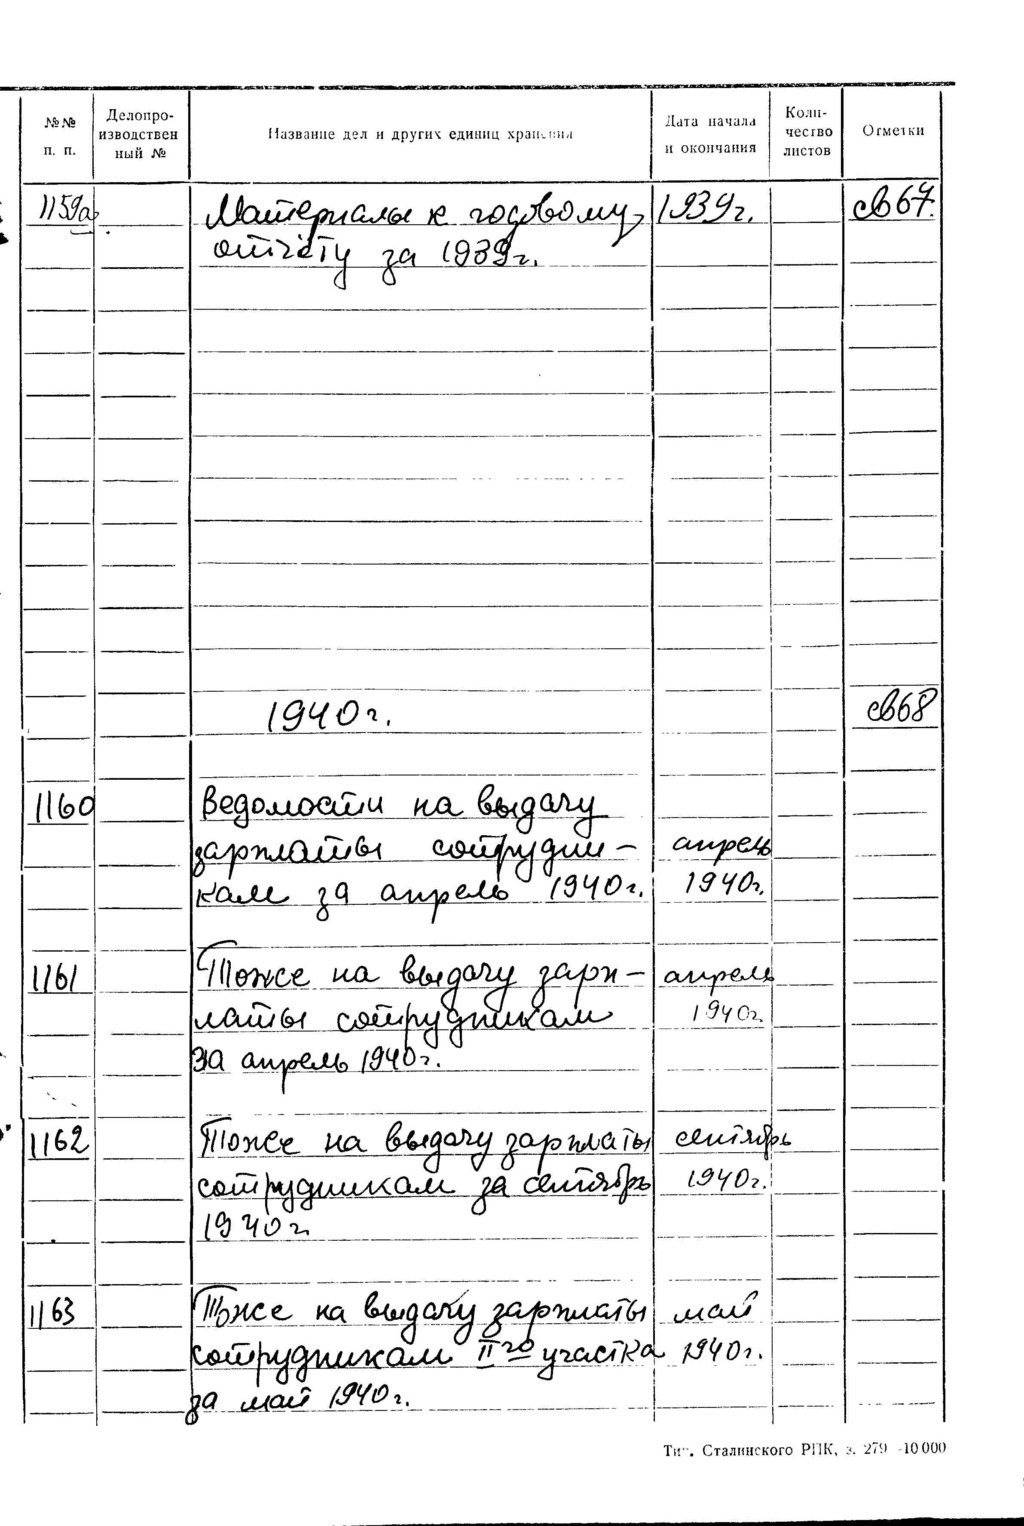 №№ п. п. Делопроизводствен ный № Название дел и других единиц хранения Дата начала и окончания Количество листов Отметки
1159а Материалы к годовому 1939г. св67.
отчёту за 1939г.
1940г. св68
1160 Ведомости на выдачу
зарплаты сотрудни- апрель
кам за апрель 1940г. 1940г.
1161 Тоже на выдачу зарп- апрель
латы сотрудникам 1940г.
за апрель 1940г.
1162 Тоже на выдачу зарплаты сентябрь
сотрудникам за сентябрь 1940г.
1940г
1163 Тоже на выдачу зарплаты май
сотрудникам II го участка 1940г.
за май 1940г.
Тип. Сталинского РПК, з. 279 -10 000